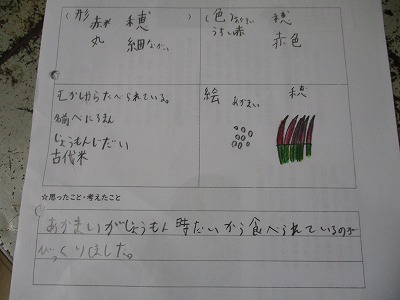 (形
赤米 穂
丸 細ながい
(色)
穂
うちし赤 赤色
むかしからたべられている。
縄へにろまん
じょうもんじだい
古代米
絵 あかまい 穂
☆思ったこと・考えたこと
あかまいがじょうもん時だいから食べられているのが
びっくりしました。